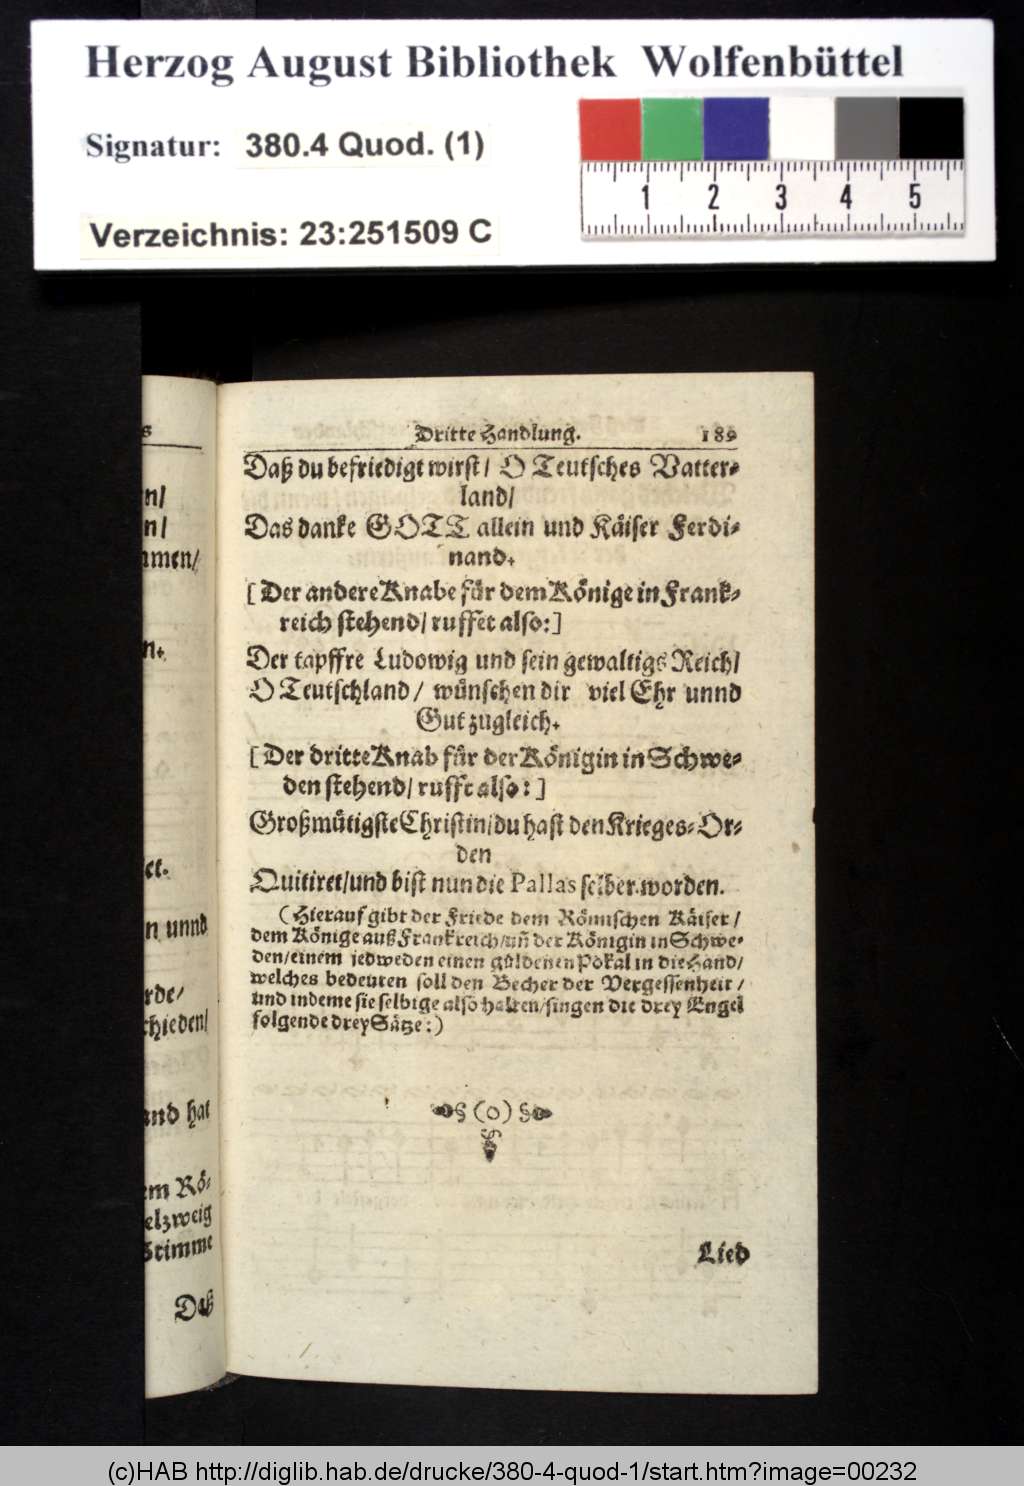 Herzog August Bibliothek Wolfenbüttel
Signatur: 380.4 Quod. (1)
Verzeichnis: 23:251509 C
1 2 3 4 5
Dritte Handlung. 189
Daß du befriedigt wirst/ O Teutsches Vatter-
land/
Das danke GOTT allein und Käiser Ferdi-
nand.
[Der andere Knabe für dem Könige in Frank-
reich stehend/ ruffet also:]
Der tapffre Ludowig und sein gewaltigs Reich/
O Teutschland/ wünschen dir viel Ehr unnd
Gut zugleich.
[Der dritte Knab für der Königin in Schwe-
den stehend/ rufft also:]
Großmütigste Christin/ du hast den Krieges-Or-
den
Quitiret/ und bist nun die Pallas selber worden.
(Hierauf gibt der Friede dem Römischen Käiser/
dem Könige auß Frankreich/ uñ der Königin in Schwe-
den/ einem jedweden einen güldenen Pokal in die Hand/
welches bedeuten soll den Becher der Vergessenheit/
und indeme sie selbige also halten/ singen die drey Engel
folgende drey Sätze:)
(o)
Lied
n/
n/
men/
n.
et.
n unnd
rde/
chieden/
and hat
em Rö-
elzweig
Stimme
Daß
(c)HAB http://diglib.hab.de/drucke/380-4-quod-1/start.htm?image=00232